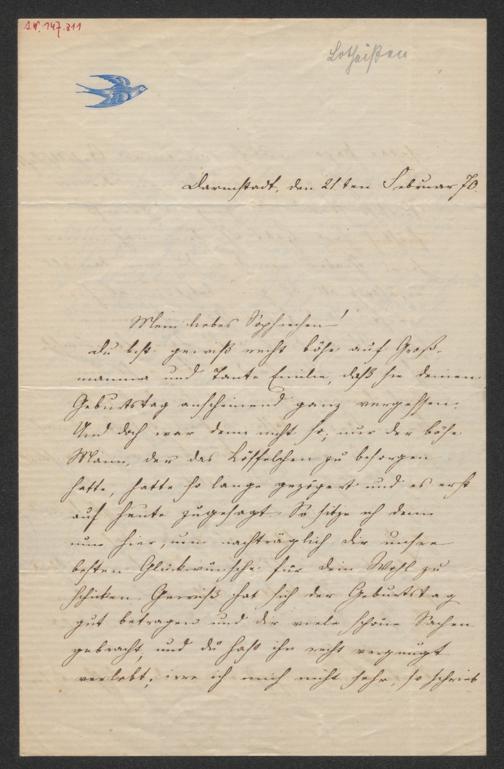 I.N. 147.811
Lotheißen
Darmstadt, den 21ten Februar 70
Mein liebes Sophiechen!
Du bist gewiß recht böse auf Groß-
mamma und Tante Emilie, daß sie deinen
Geburtstag anscheinend ganz vergessen.
Und doch war dem nicht so, nur der böse
Mann, der das Löffelchen zu besorgen
hatte, hatte so lange gezögert und es erst
auf heute zugesagt. So sitze ich denn
nun hier, um nachträglich dir unsere
besten Glückwünsche für dein Wohl zu
schicken. Gewiß hat sich der Geburtstag
gut betragen und dir viele schöne Sachen
gebracht, und du hast ihn recht vergnügt
verlebt; irre ich mich nicht sehr, so schrieb